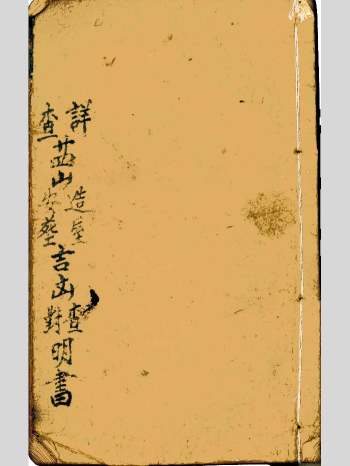 詳
查
山
造
安葬
吉凶
查
對
明書